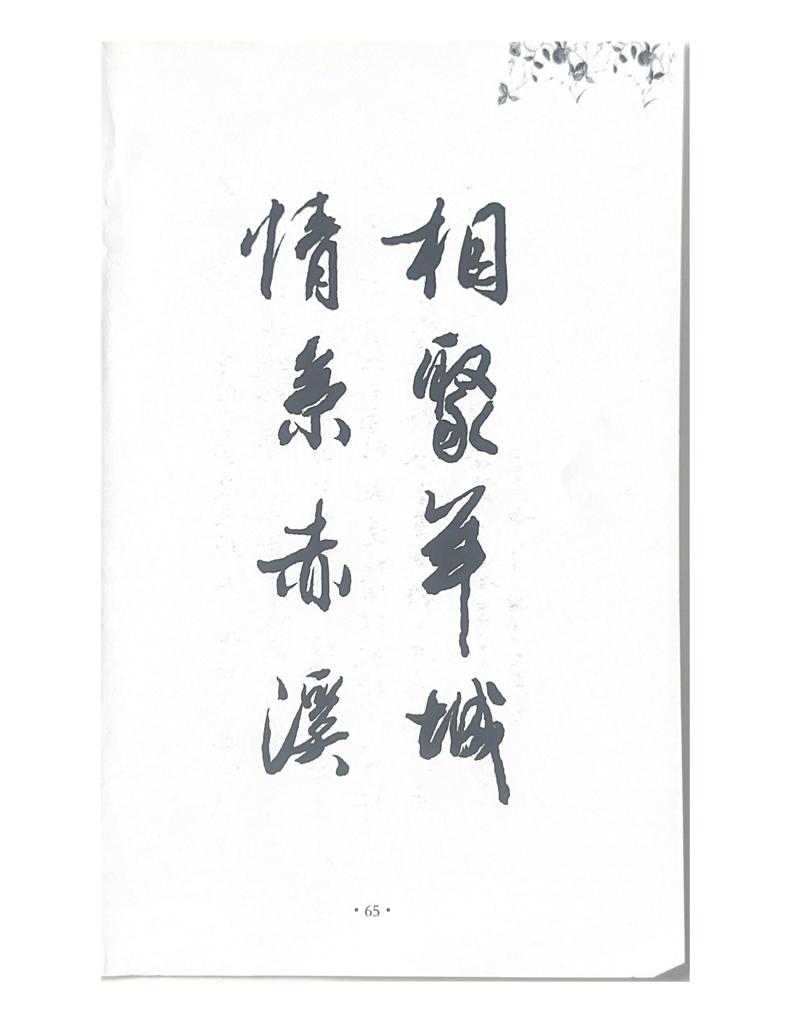 相聚羊城
情系赤溪
• 65 •